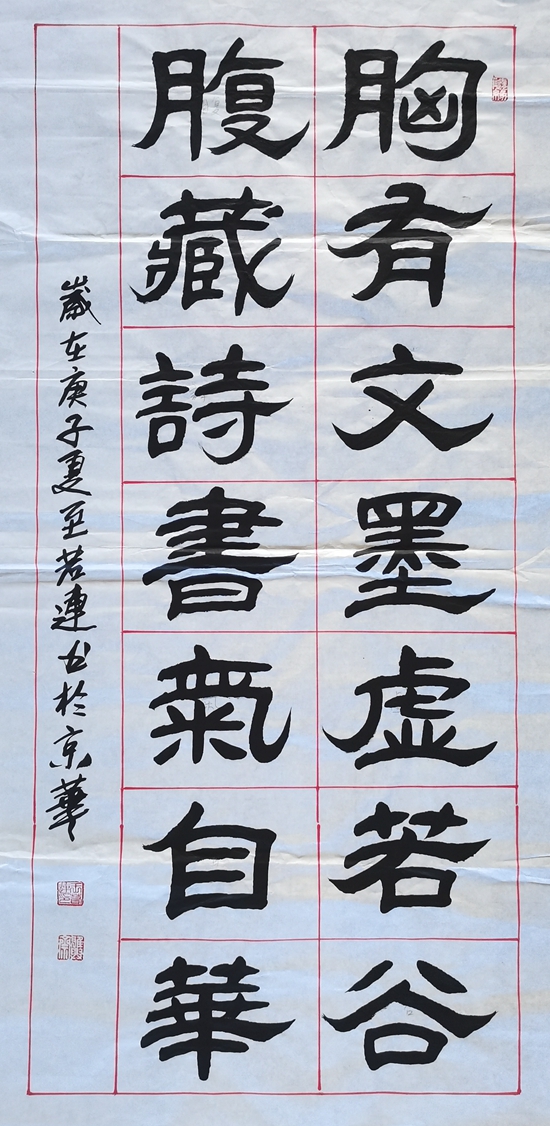 胸有文墨虚若谷
腹藏詩書氣自華
歲在庚子夏至若連书於京華